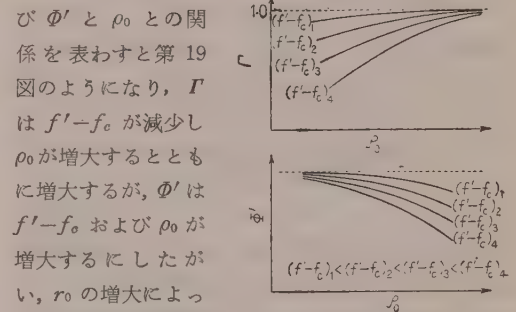 び Φ′ と ρ₀ との関
係を表わすと第 19
図のようになり，Γ
は f′−f꜀ が減少し
ρ₀が増大するととも
に増大するが，Φ′は
f′−f₀ および ρ₀ が
増大するにしたが
い，r₀ の増大によっ
1.0
(f′−f꜀)₁
(f′−f꜀)₂
(f′−f꜀)₃
(f′−f꜀)₄
Γ
ρ₀
(f′−f꜀)₁
(f′−f꜀)₂
(f′−f꜀)₃
(f′−f꜀)₄
Φ′
(f′−f꜀)₁<(f′−f꜀)₂<(f′−f꜀)₃<(f′−f꜀)₄
ρ₀